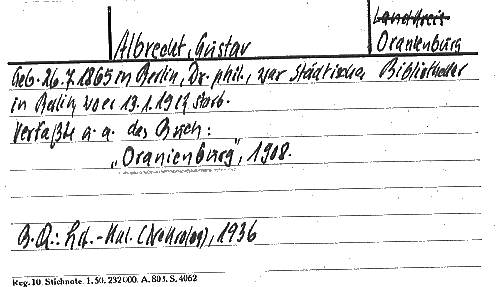 Landkreis
Albrecht, Gustav
Oranienburg
Geb. 26.7.1865 in Berlin, Dr. phil., war Städtischer Bibliothekar
in Berlin wo er 13.1.1917 starb.
Verfaßte u. a. das Buch:
„Oranienburg", 1908.
B.Q.: Ld.-Kal. (Nekrolog), 1936
Reg. 10. Stichnote. 1. 50. 232000. A. 803. S. 4062